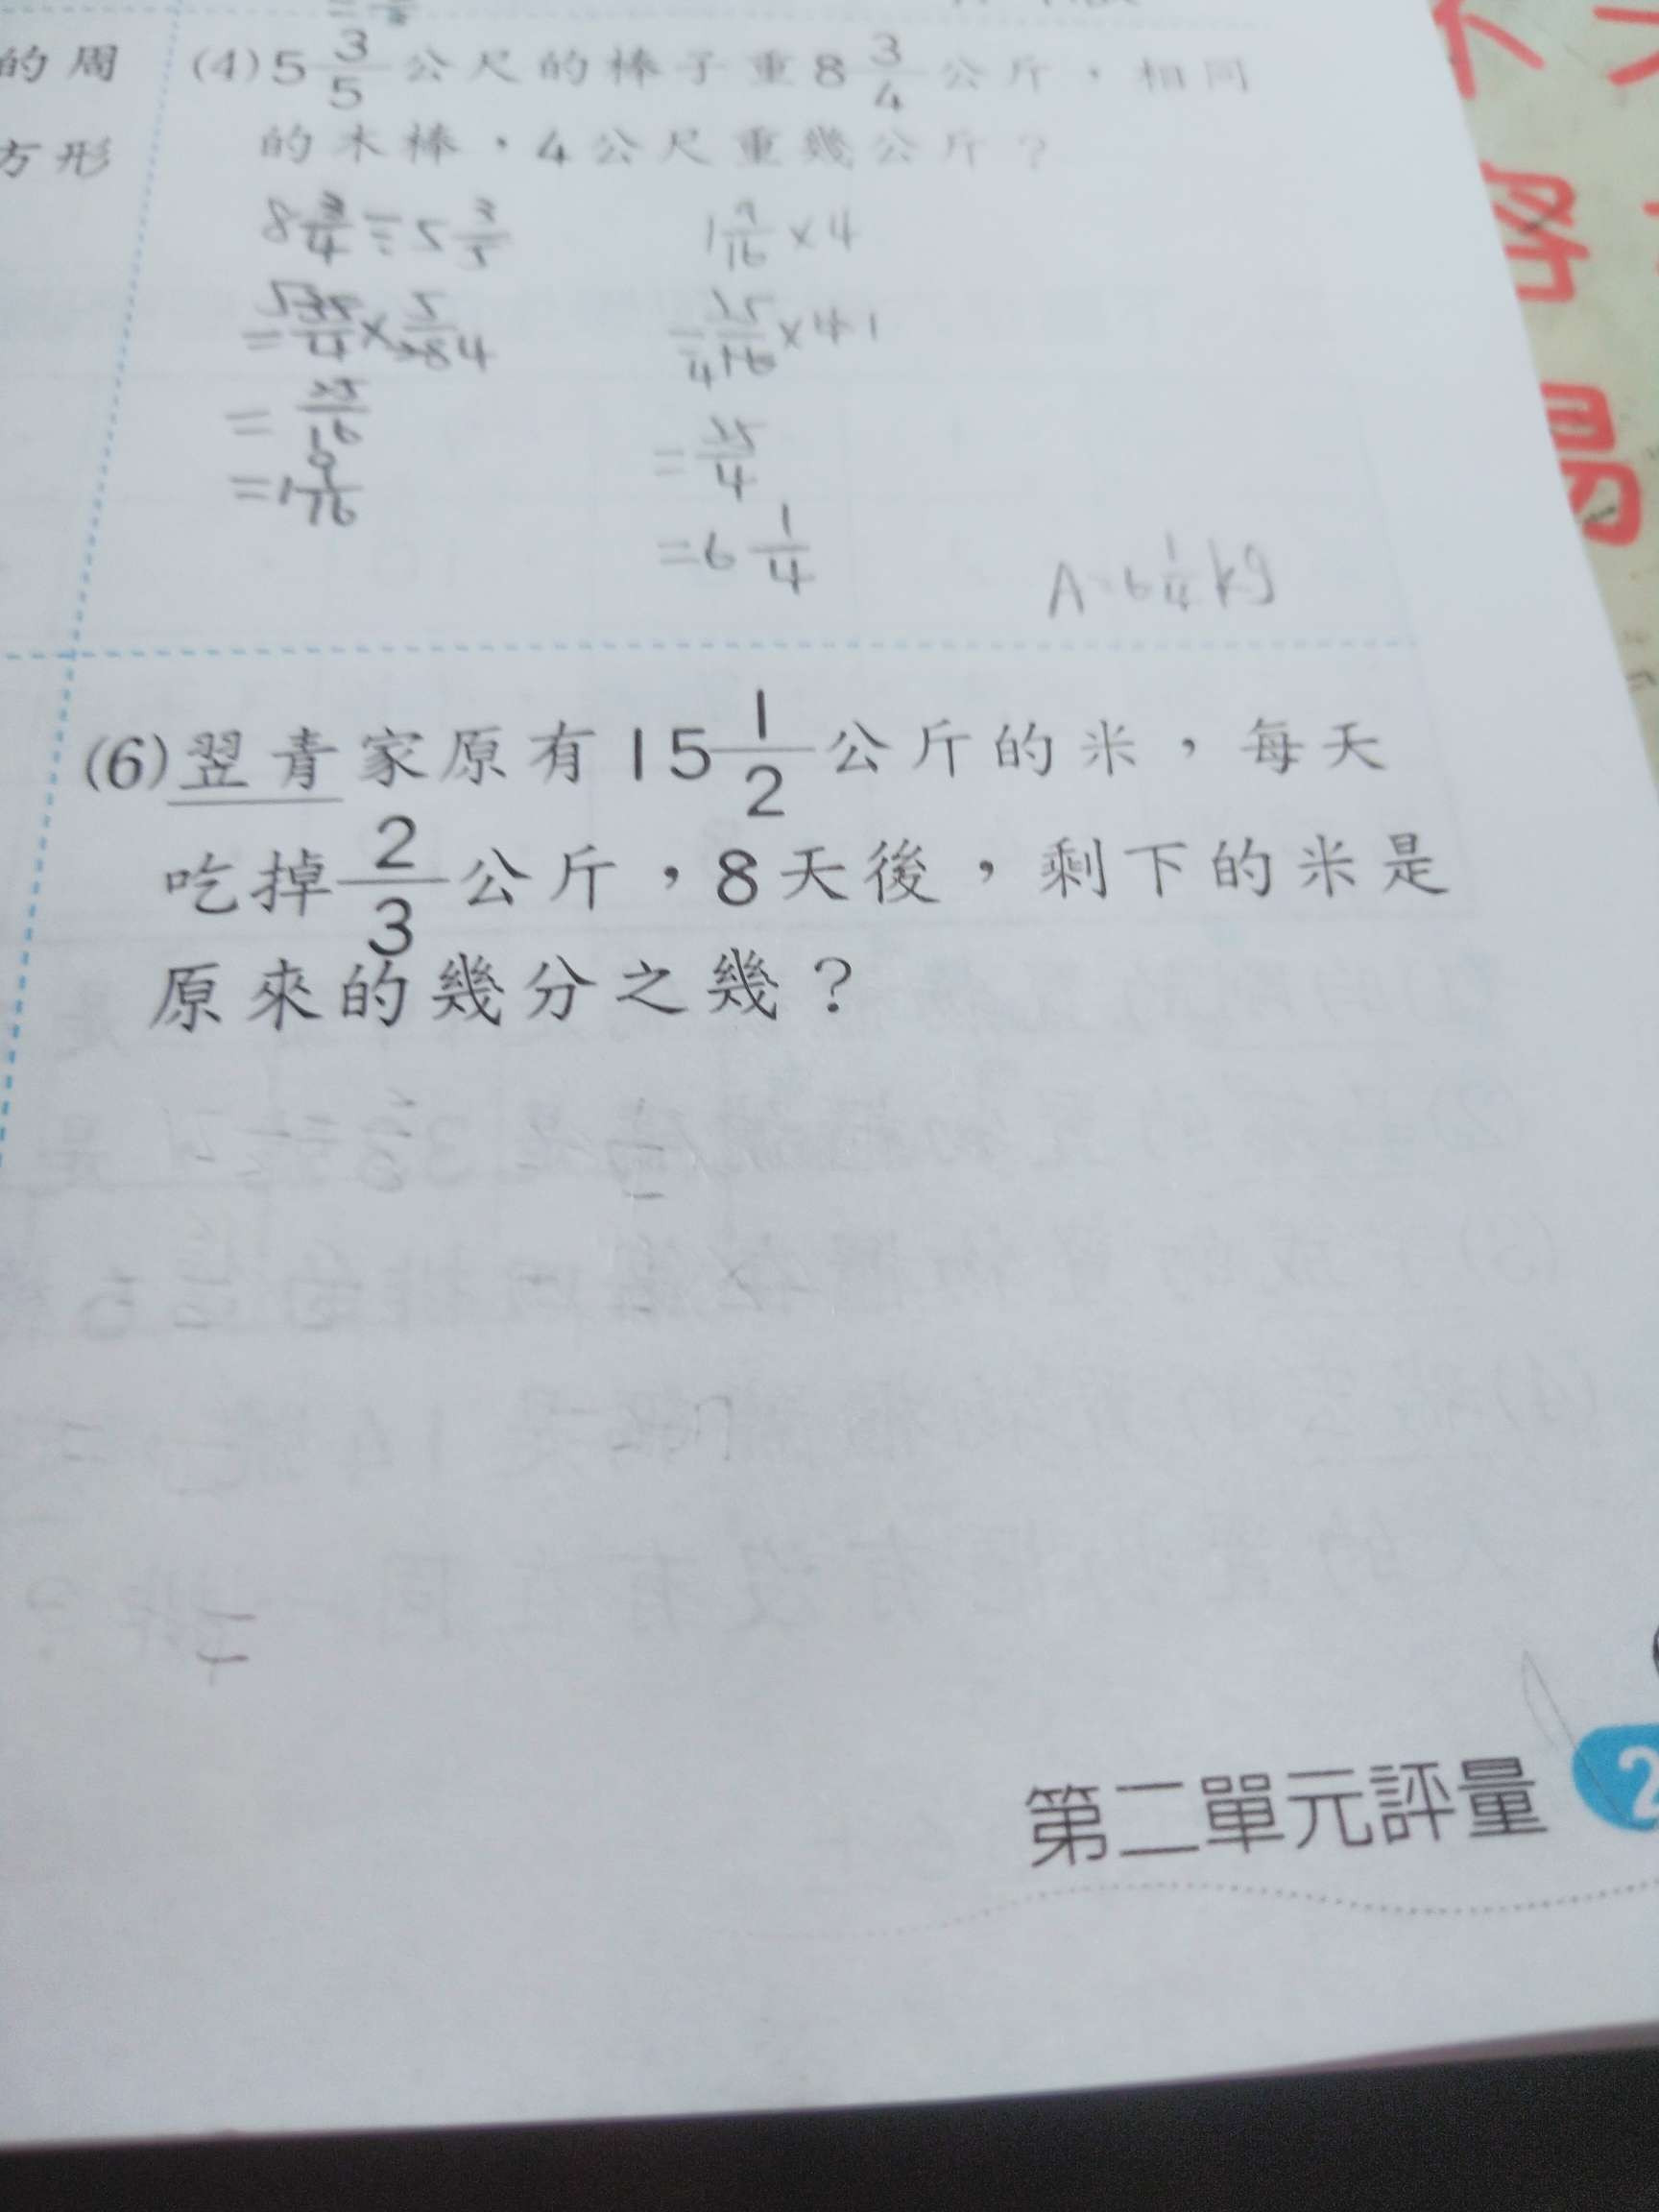 的周
方形
(4) 5 3/5 公尺的棒子重 8 3/4 公斤，相同
的木棒，4公尺重幾公斤？
8 3/4 ÷ 5 3/5
= 35/4 × 5/28 4
= 25/16
= 1 9/16
1 9/16 × 4
= 25/16 × 4 1
4
= 25/4
= 6 1/4
A: 6 1/4 kg
(6) 翌青家原有 15 1/2 公斤的米，每天
吃掉 2/3 公斤，8天後，剩下的米是
原來的幾分之幾？
第二單元評量
2